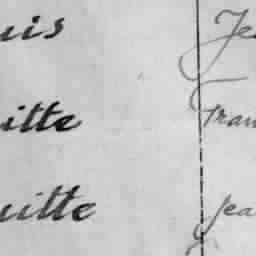 uis Je
itte Fran
uitte Jea